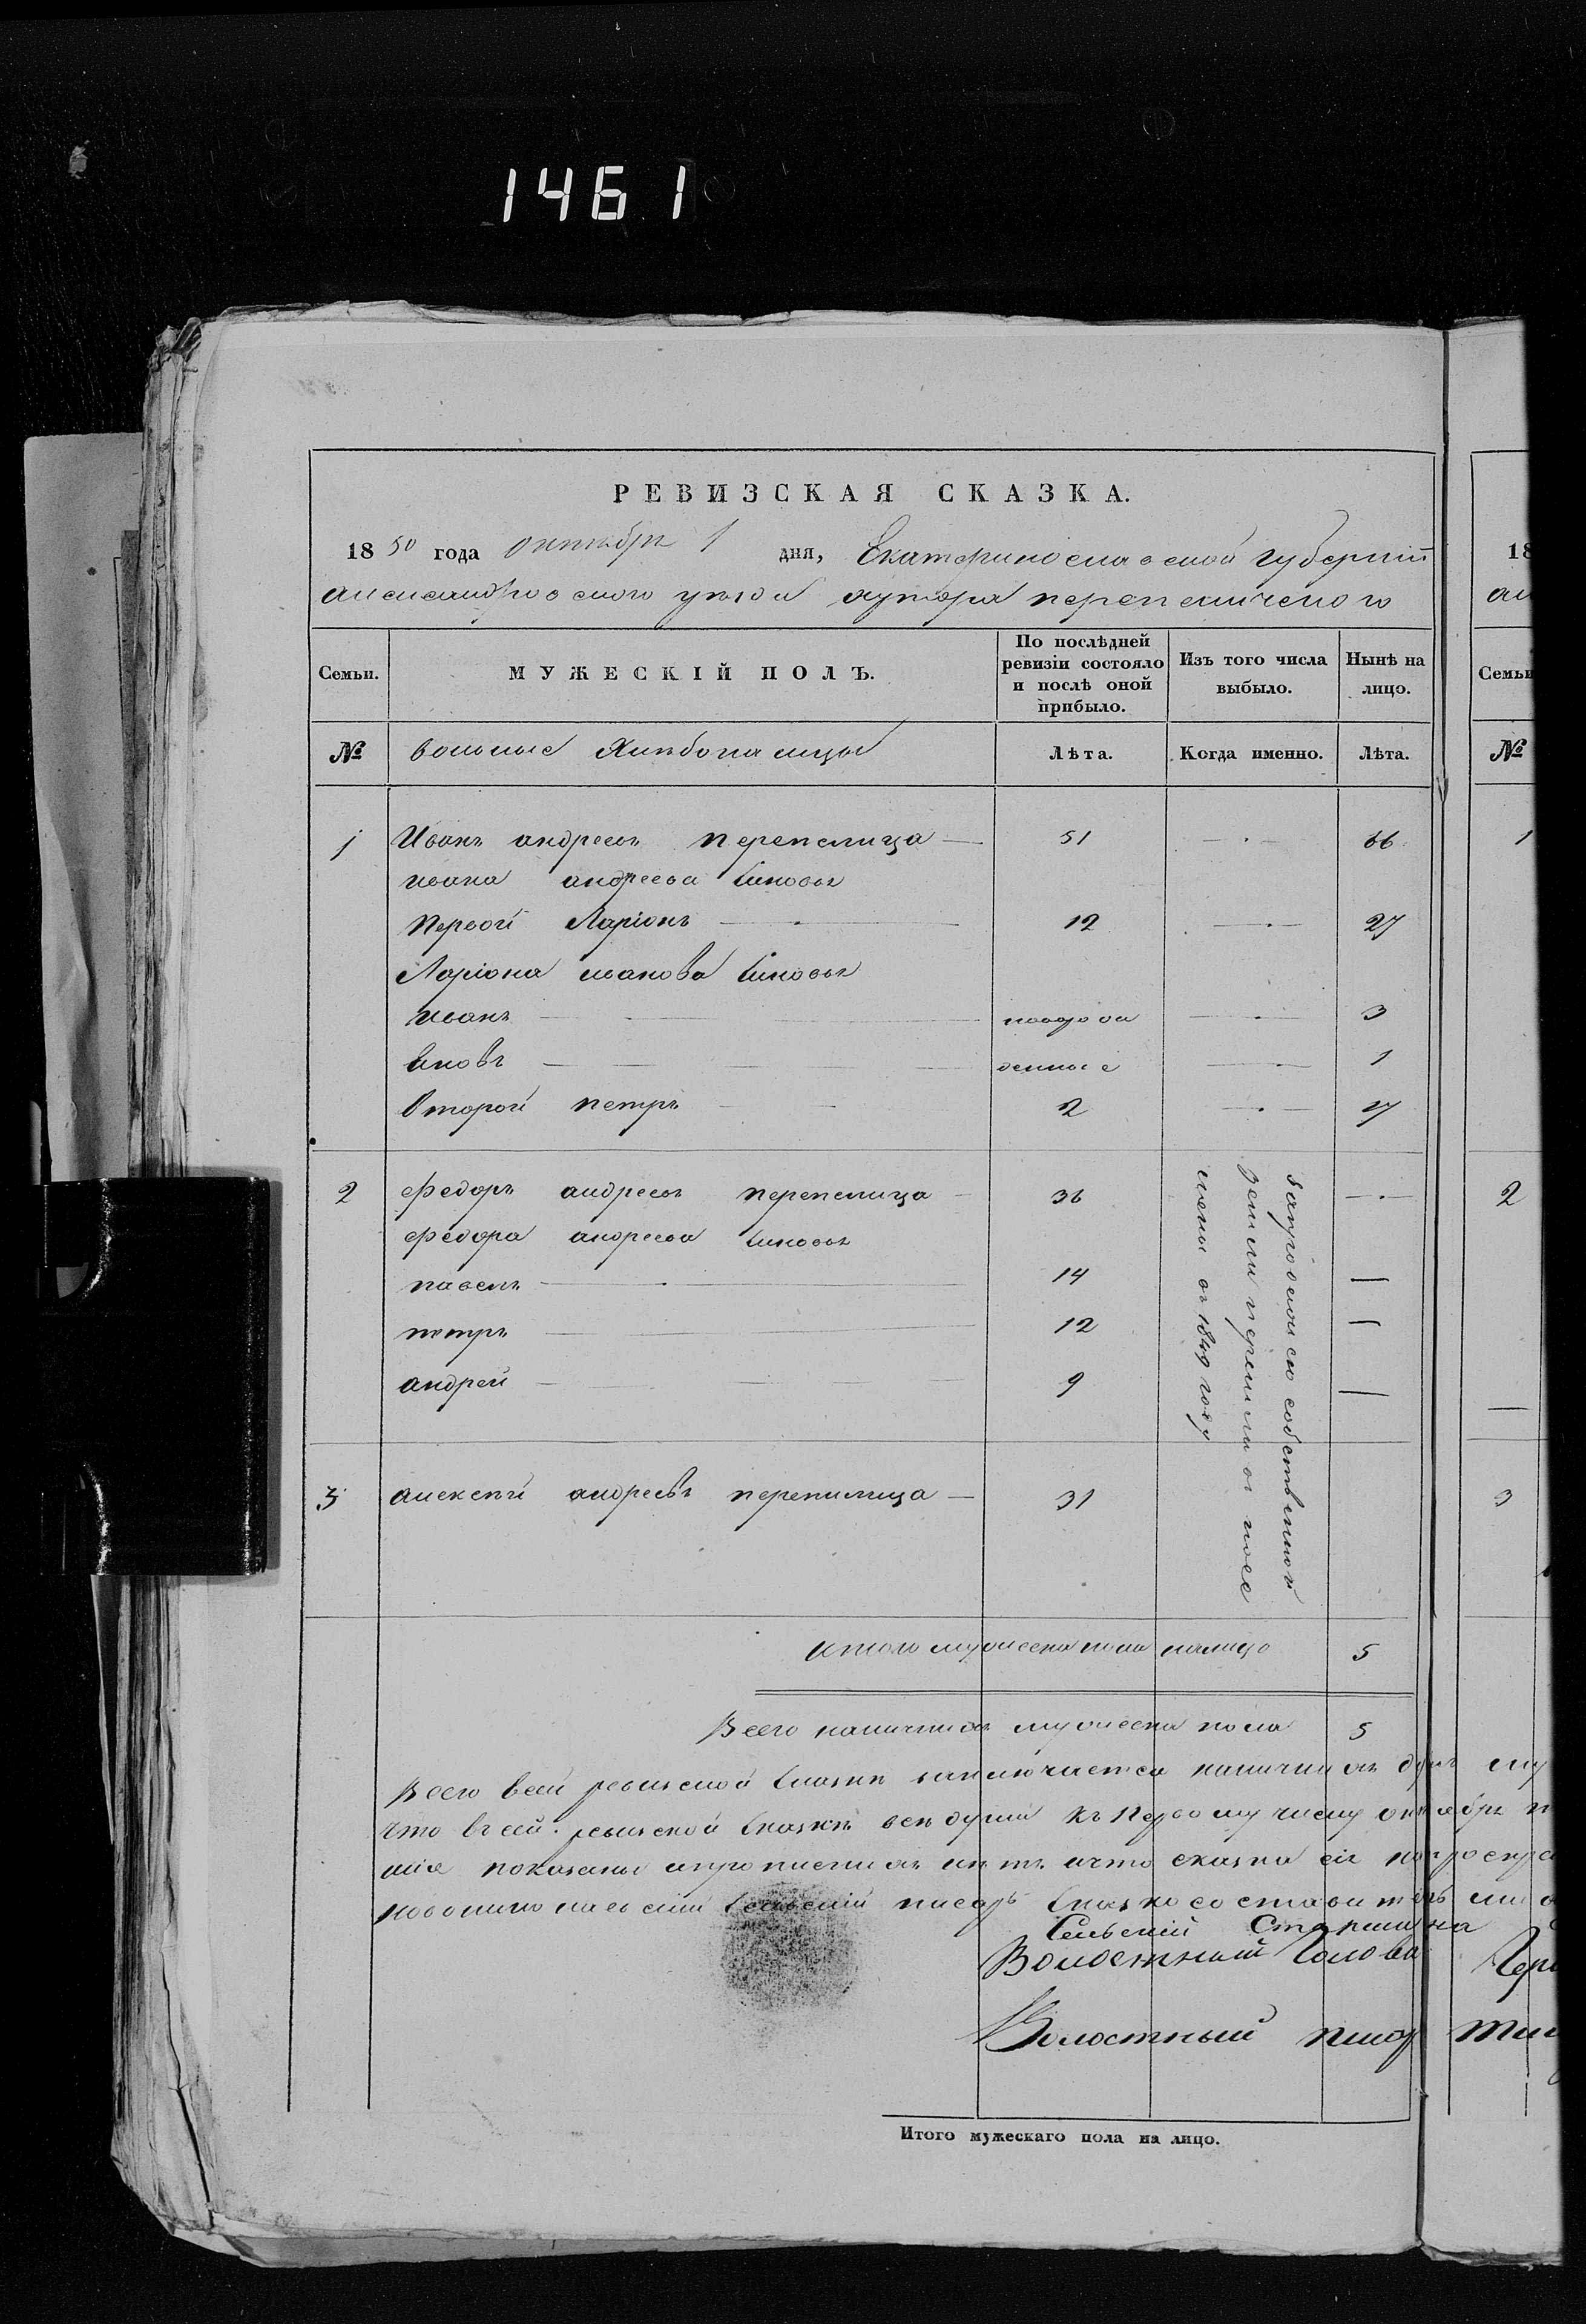 1461
РЕВИЗСКАЯ СКАЗКА.
1850 года октября 1 дня, Екатеринославской губернии
александровского уезда хутора перепеличеного
Семьи. МУЖЕСКІЙ ПОЛЪ. По послѣдней ревизіи состояло и послѣ оной прибыло. Изъ того числа выбыло. Нынѣ на лицо.
№ вольные Хлебопашцы Лѣта. Когда именно. Лѣта.
1 Иванъ андреевъ перепелица — 51 — 66
ивана андреева Сыновья
первой Ларіонъ — 12 — 27
Ларіона иванова Сыновья
иванъ — новоро — 3
Яковъ — денные — 1
Второй петръ — 2 — 17
2 Федоръ андреевъ перепелица — 36 —
Федора андреева Сыновья
павелъ — 14 —
петръ — 12 —
андрей — 9 —
3 алексѣй андреевъ перепилица — 31
собственной
земли перешли
въ 1849 году
итого мужеска пола налицо 5
Всего наличныхъ мужеска пола 5
Всего в сей ревизской Сказкѣ заключается наличныхъ душъ му
что в сей ревизской Сказкѣ все души къ Первому числу октября
показаны и прописныхъ нетъ и что сказка сія
Сельский писарь Сказкосоставитель
Сельский Старшина
Волостный Голова
Волостный писар
Итого мужескаго пола на лицо.
18
Семьи
№
1
2
3